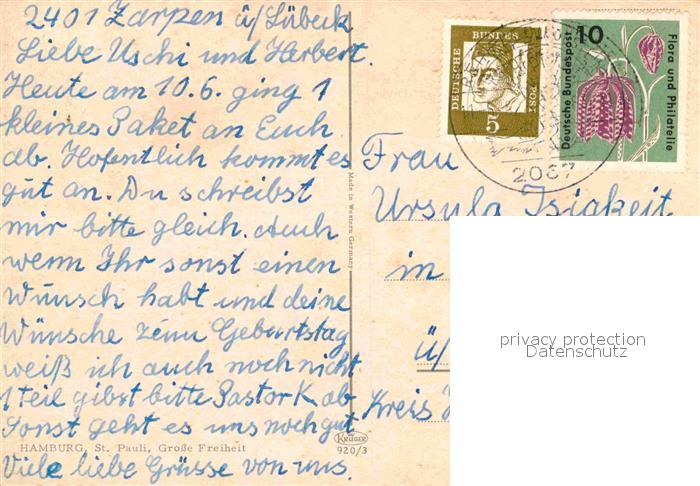 2401 Zarpen ü/Lübeck
Liebe Uschi und Herbert.
Heute am 10.6. ging 1
kleines Paket an Euch
ab. Hofentlich kommt es
gut an. Du schreibst
mir bitte gleich. Auch
wenn Ihr sonst einen
Wunsch habt und deine
Wünsche zum Geburtstag
weiß ich auch noch nicht.
1 Teil gibst bitte Pastor K. ab
Sonst geht es uns noch gut
Viele liebe Grüsse von uns.
HAMBURG, St. Pauli, Große Freiheit
Made in Western Germany
KRÜGER
920/3
DEUTSCHE BUNDESPOST
5
10
Deutsche Bundespost
Flora und Philatelie
2067
Frau
Ursula Isigkeit
in
ü/
Kreis
privacy protection
Datenschutz